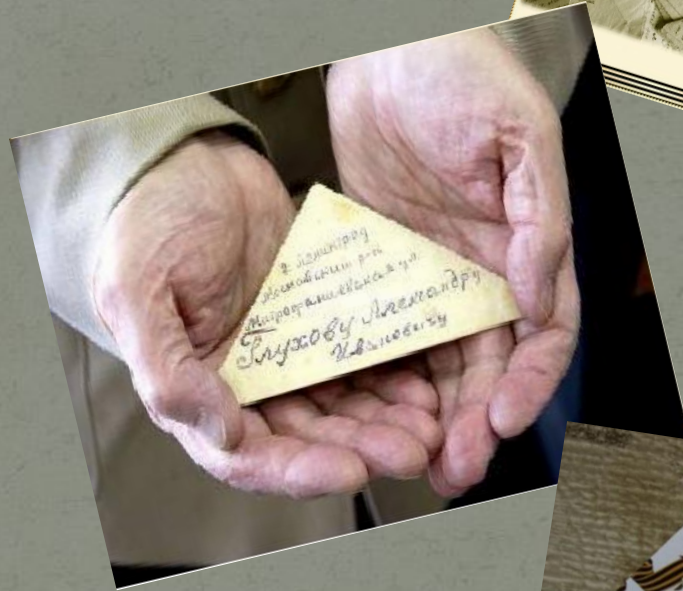 г. Ленинград
Московский р-н
Митрофаньевская ул.
Глухову Александру
Ивановичу